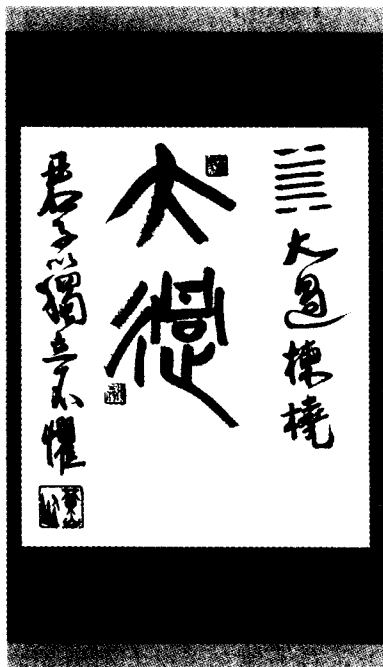 大過棟橈
大過
君子以獨立不懼